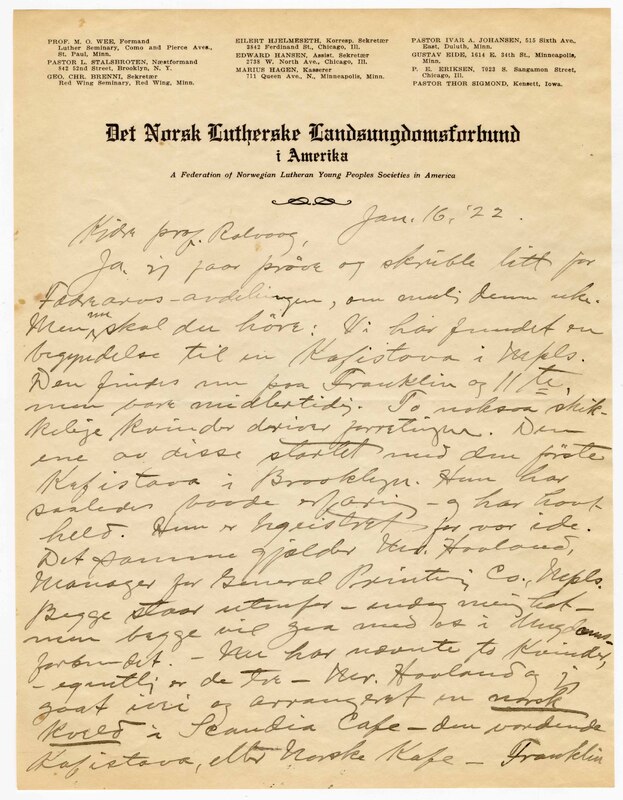 PROF. M. O. WEE, Formand
Luther Seminary, Como and Pierce Aves.,
St. Paul, Minn.
PASTOR L. STALSBROTEN, Næstformand
842 52nd Street, Brooklyn, N. Y.
GEO. CHR. BRENNI, Sekretær
Red Wing Seminary, Red Wing, Minn.
EILERT HJELMESETH, Korresp. Sekretær
3842 Ferdinand St., Chicago, Ill.
EDWARD HANSEN, Assist. Sekretær
2738 W. North Ave., Chicago, Ill.
MARIUS HAGEN, Kasserer
711 Queen Ave., N., Minneapolis, Minn.
PASTOR IVAR A. JOHANSEN, 515 Sixth Ave.,
East, Duluth, Minn.
GUSTAV EIDE, 1614 E. 34th St., Minneapolis,
Minn.
P. E. ERIKSEN, 7023 S. Sangamon Street,
Chicago, Ill.
PASTOR THOR SIGMOND, Kensett, Iowa.
Det Norsk Lutherske Landsungdomsforbund
i Amerika
A Federation of Norwegian Lutheran Young Peoples Societies in America
Jan. 16, '22.
Kjære prof. Rolvaag,
Ja, jeg faar prøve og skrible litt for
Fædrearvs-avdelingen, om mulig denne uke.
Men nu skal du höre: Vi har fundet en
begyndelse til en Kafistova i Mpls.
Den findes nu paa Franklin og 11te,
men bare midlertidig. To noksaa skik-
kelige kvinder driver forretningen. Den
ene av disse startet med den förste
Kafistova i Brooklyn. Hun har
saaledes baade erfaring og har havt
held. Hun er begeistret for vor ide.
Det samme gjælder Mr. Hovland,
Manager for General Printing Co., Mpls.
Begge staar utenfor - menighet -
men begge vil gaa med os i Ungdoms-
forbundet. - Nu har nævnte to kvinder,
- egentlig er de tre - Mr. Hovland og jeg
gaat i og arrangeret en norsk
kveld i Scandia Cafe - den vordende
Kafistova, eller Norske Kafe - Franklin